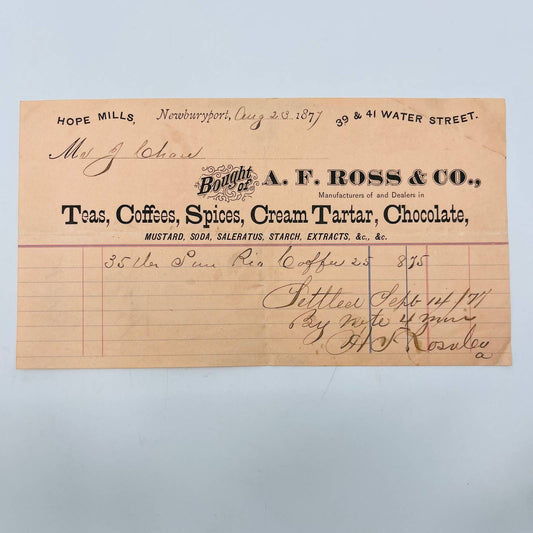 HOPE MILLS, Newburyport, Aug 23 1877 39 & 41 WATER STREET.
Mr J Chase
Bought of A. F. ROSS & CO.,
Manufacturers of and Dealers in
Teas, Coffees, Spices, Cream Tartar, Chocolate,
MUSTARD, SODA, SALERATUS, STARCH, EXTRACTS, &c., &c.
35 Rio Coffee 25 8 75
Settled Sept 14/77
By note 4 mos
A F Ross & Co